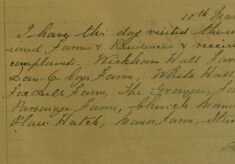 10th Mar
I have this day visited the u
ioned Farms & Residences & receiv
complaint. Wickham Hall Farm
Farm, White Hall
Farm, The Grange,
Parsonage Farm, Church Manor
Plaw Hatch, Manor Farm,